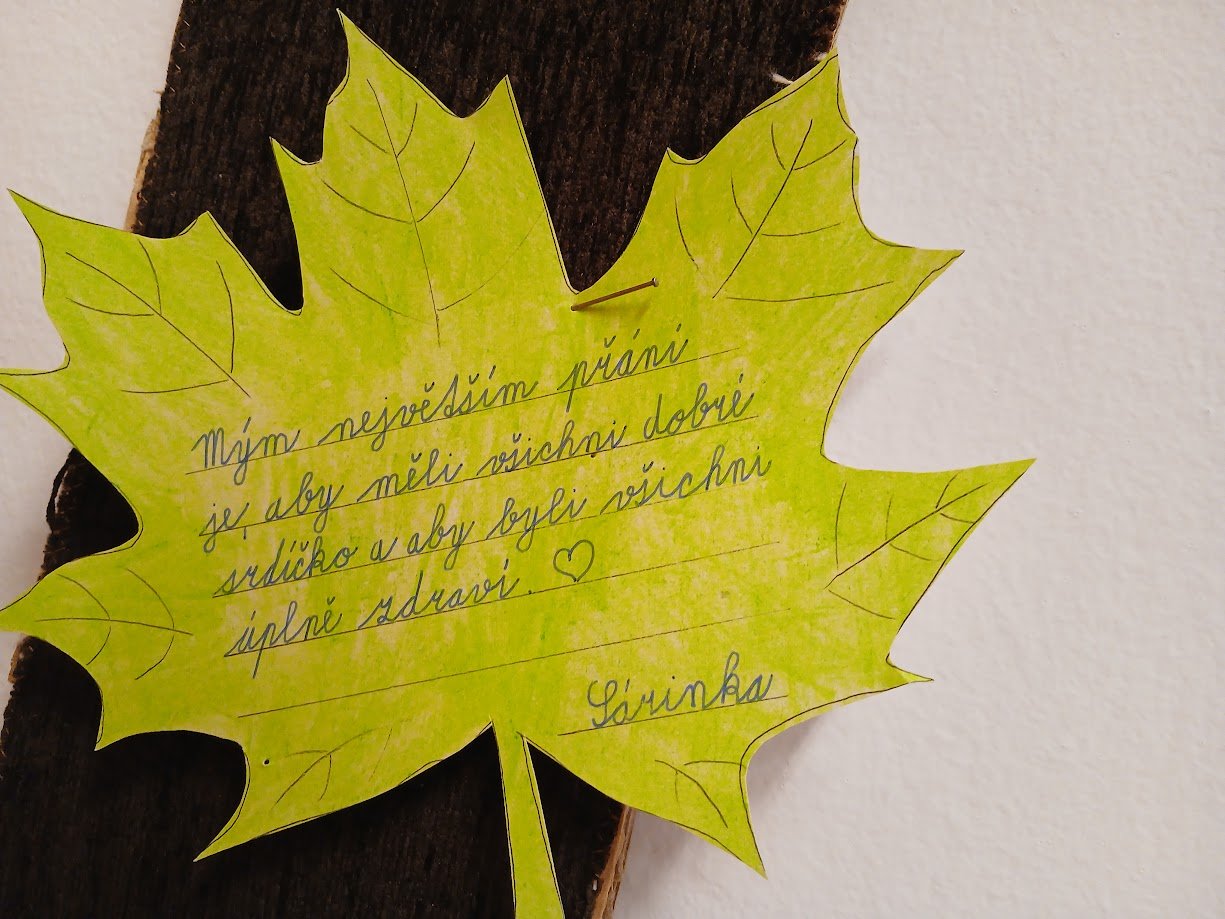 Mým největším přání
je, aby měli všichni dobré
srdíčko a aby byli všichni
úplně zdraví. ♡
Sárinka